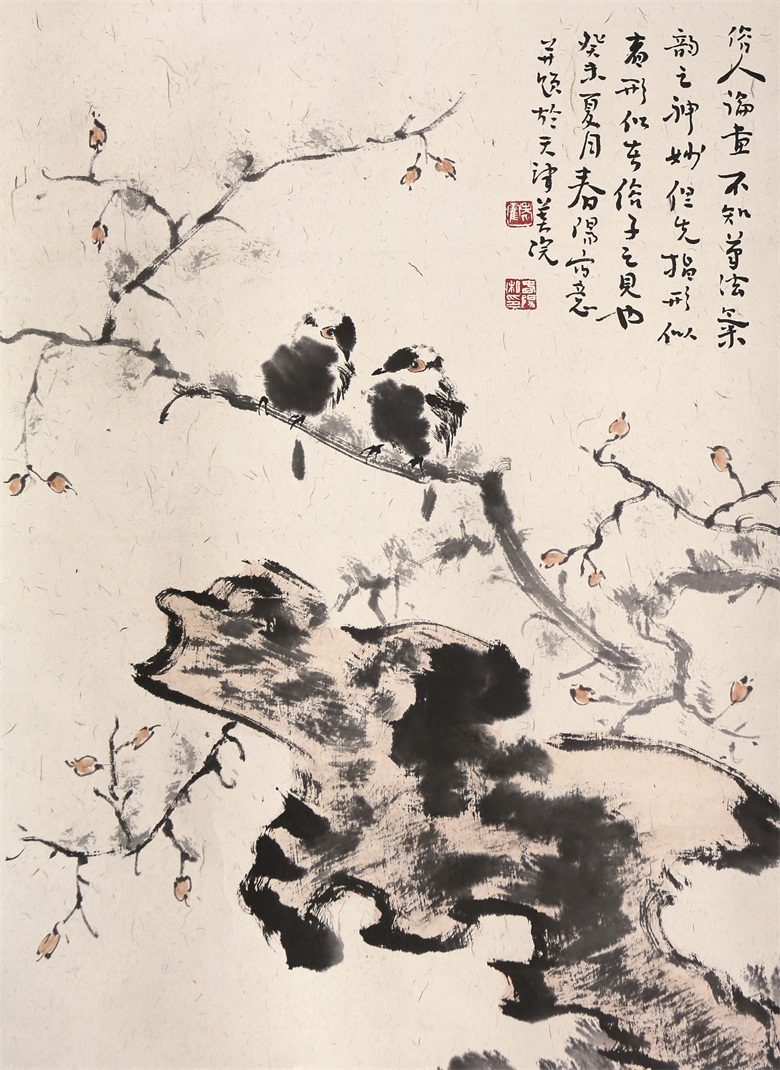 俗人論畫不知筆法氣
韵之神妙但先指形似
者形似者俗子之見也
癸未夏月春陽寫意
并題於天津美院
春陽私印